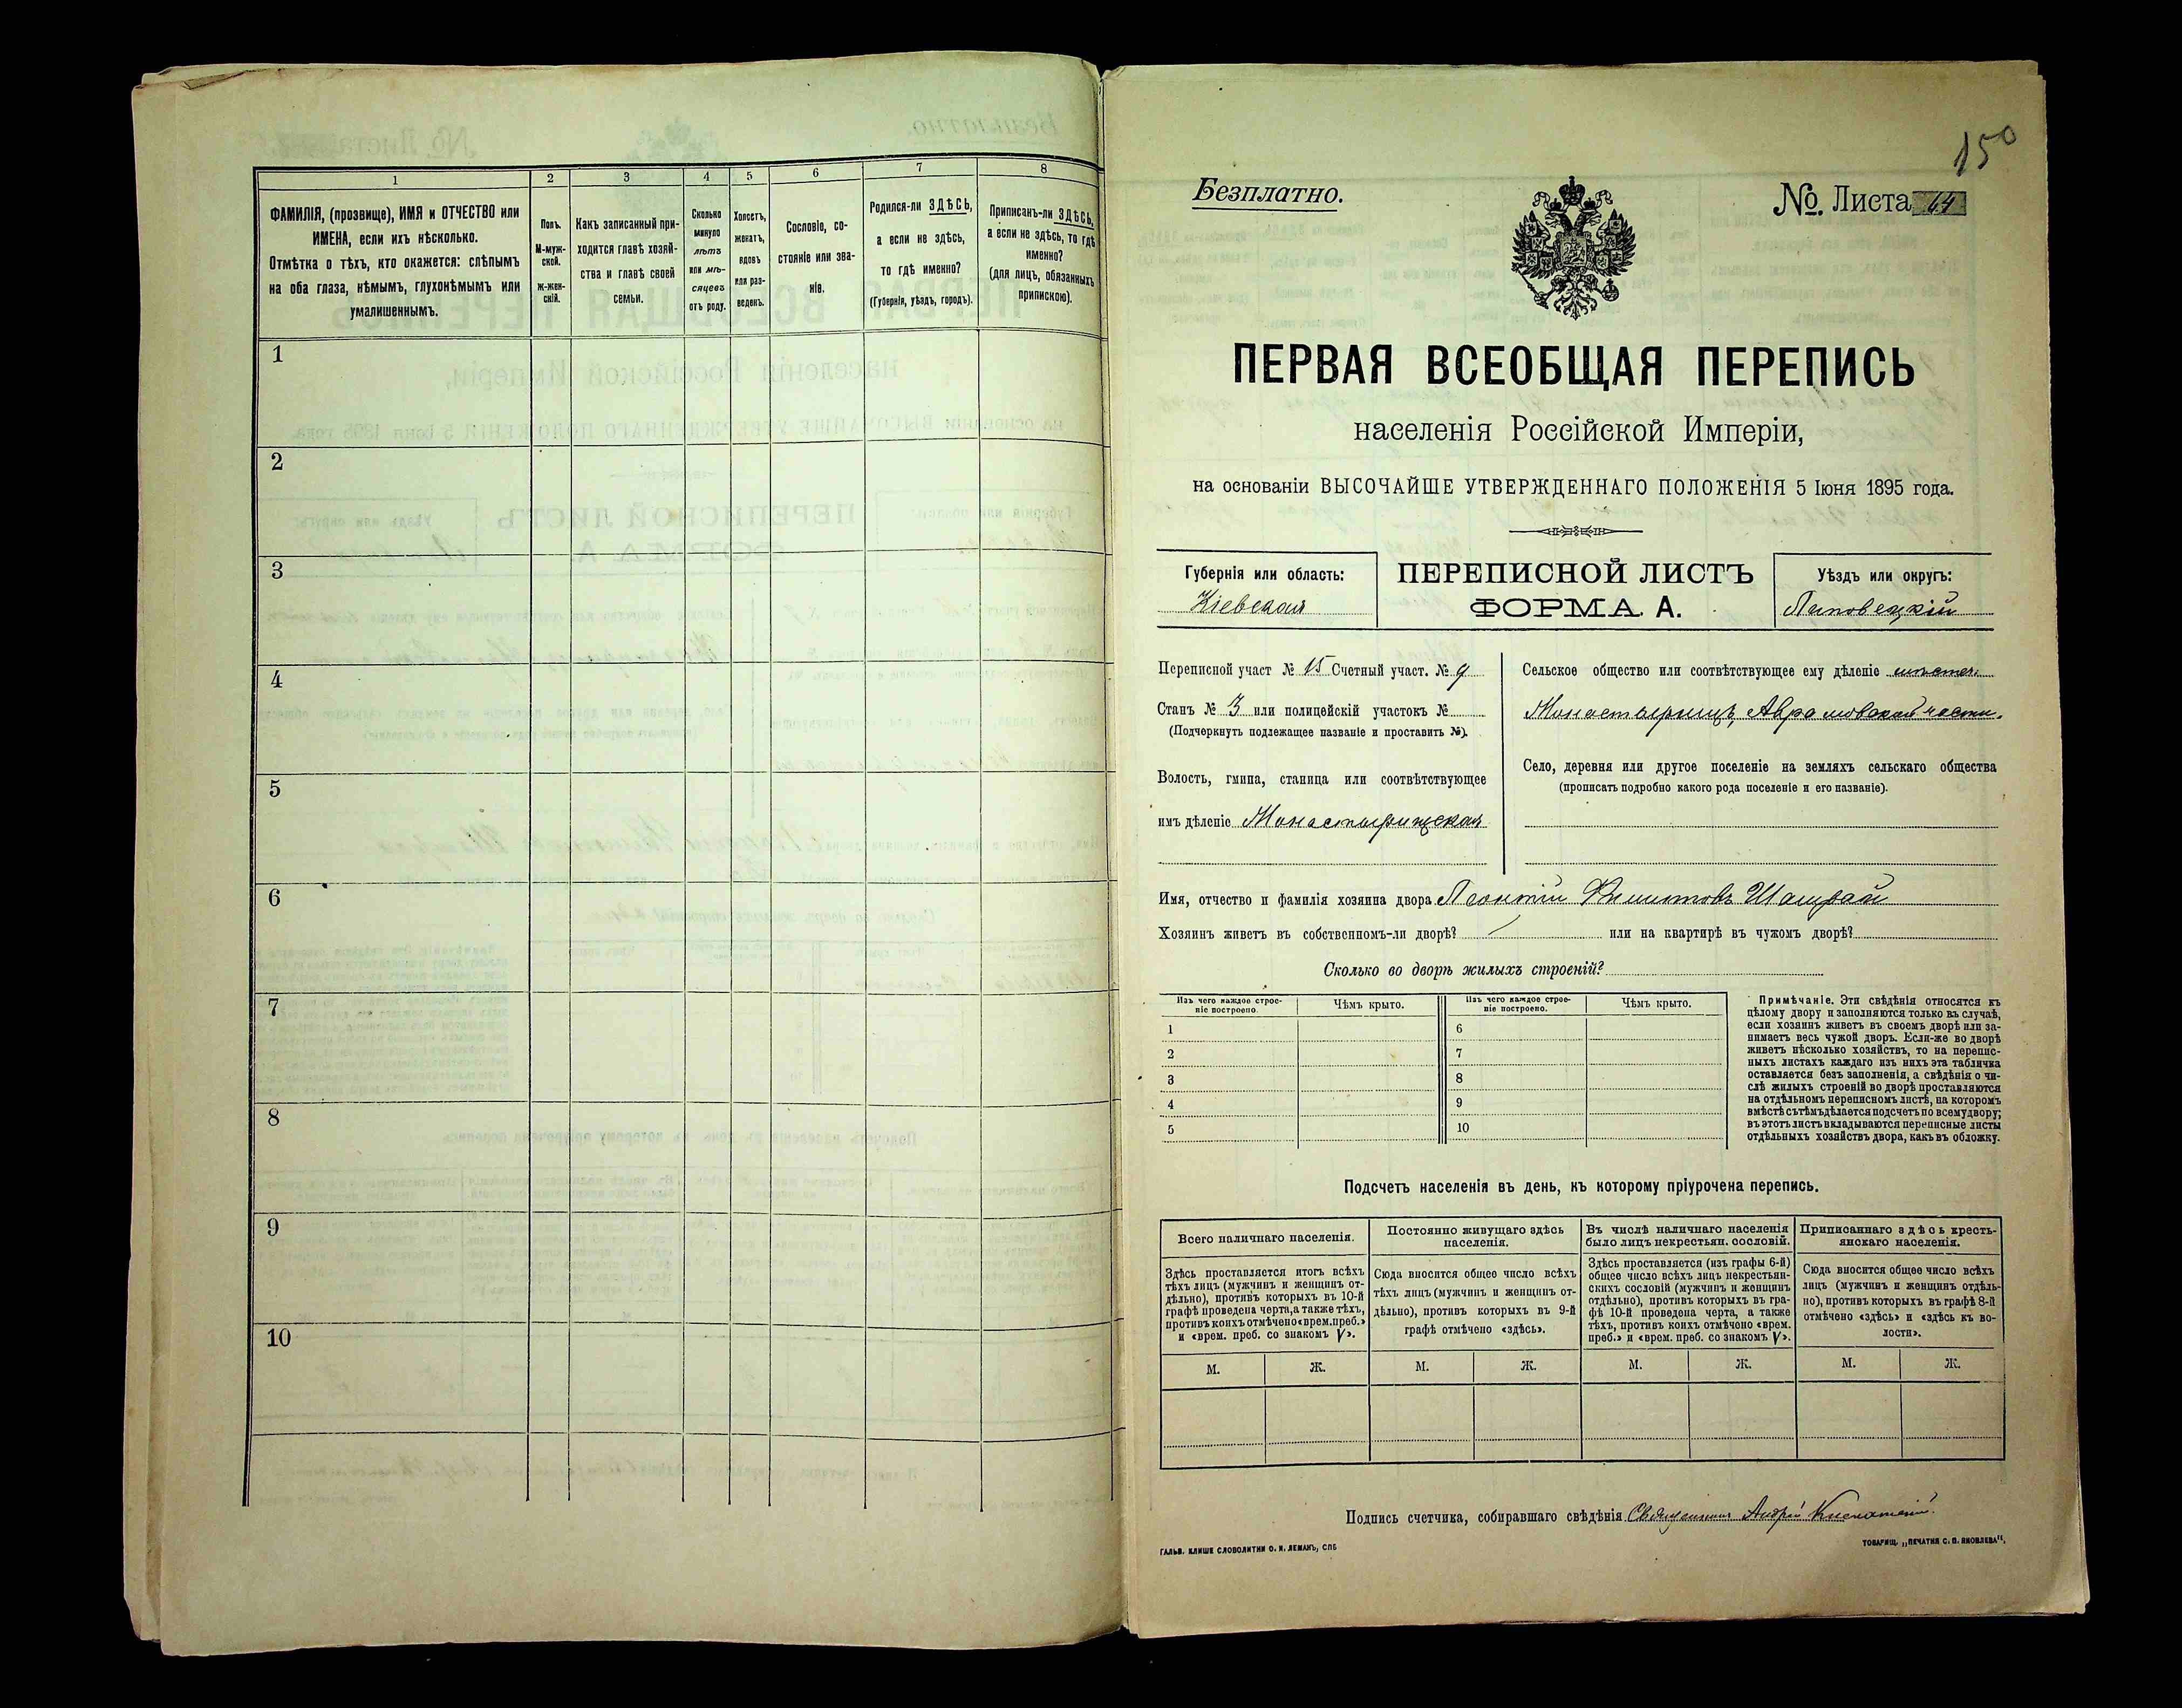 1
2
3
4
5
6
7
8
ФАМИЛІЯ, (прозвище), ИМЯ и ОТЧЕСТВО или
ИМЕНА, если ихъ нѣсколько.
Отмѣтка о тѣхъ, кто окажется: слѣпымъ
на оба глаза, нѣмымъ, глухонѣмымъ или
умалишеннымъ.
Полъ.
М-муж-
ской.
Ж-жен-
скій.
Какъ записанный при-
ходится главѣ хозяй-
ства и главѣ своей
семьи.
Сколько
минуло
лѣтъ
или мѣ-
сяцевъ
отъ роду.
Холостъ,
женатъ,
вдовъ
или раз-
веденъ.
Сословіе, со-
стояніе или зва-
ніе.
Родился-ли ЗДѢСЬ,
а если не здѣсь,
то гдѣ именно?
(Губернія, уѣздъ, городъ).
Приписанъ-ли ЗДѢСЬ,
а если не здѣсь, то гдѣ
именно?
(для лицъ, обязанныхъ
припискою).
1
2
3
4
5
6
7
8
9
10
150
Безплатно.
№. Листа 64
ПЕРВАЯ ВСЕОБЩАЯ ПЕРЕПИСЬ
населенія Россійской Имперіи,
на основаніи ВЫСОЧАЙШЕ УТВЕРЖДЕННАГО ПОЛОЖЕНІЯ 5 Іюня 1895 года.
Губернія или область:
Кіевская
ПЕРЕПИСНОЙ ЛИСТЪ
ФОРМА А.
Уѣздъ или округъ:
Липовецкій
Переписной участ № 15 Счетный участ. № 9
Станъ № 3 или полицейскій участокъ №
(Подчеркнуть подлежащее названіе и проставить №).
Волость, гмина, станица или соотвѣтствующее
имъ дѣленіе Монастырищская
Сельское общество или соотвѣтствующее ему дѣленіе мѣстеч.
Монастырищъ, Аврамовской части.
Село, деревня или другое поселеніе на земляхъ сельскаго общества
(прописать подробно какого рода поселеніе и его названіе).
Имя, отчество и фамилія хозяина двора Леонтій Филиповъ Шамрай
Хозяинъ живетъ въ собственномъ-ли дворѣ? / или на квартирѣ въ чужомъ дворѣ?
Сколько во дворѣ жилыхъ строеній?
Изъ чего каждое строе-
ніе построено.
Чѣмъ крыто.
Изъ чего каждое строе-
ніе построено.
Чѣмъ крыто.
1
2
3
4
5
6
7
8
9
10
Примѣчаніе. Эти свѣдѣнія относятся къ
цѣлому двору и заполняются только въ случаѣ,
если хозяинъ живетъ въ своемъ дворѣ или за-
нимаетъ весь чужой дворъ. Если-же во дворѣ
живетъ нѣсколько хозяйствъ, то на перепис-
ныхъ листахъ каждаго изъ нихъ эта табличка
оставляется безъ заполненія, а свѣдѣнія о чи-
слѣ жилыхъ строеній во дворѣ проставляются
на отдѣльномъ переписномъ листѣ, на которомъ
вмѣстѣ съ тѣмъ дѣлается подсчетъ по всему двору;
въ этотъ листъ вкладываются переписные листы
отдѣльныхъ хозяйствъ двора, какъ въ обложку.
Подсчетъ населенія въ день, къ которому пріурочена перепись.
Всего наличнаго населенія.
Постоянно живущаго здѣсь
населенія.
Въ числѣ наличнаго населенія
было лицъ некрестьян. сословій.
Приписаннаго здѣсь кресть-
янскаго населенія.
Здѣсь проставляется итогъ всѣхъ
тѣхъ лицъ (мужчинъ и женщинъ от-
дѣльно), противъ которыхъ въ 10-й
графѣ проведена черта, а также тѣхъ,
противъ коихъ отмѣчено «врем. преб.»
и «врем. проб. со знакомъ V».
Сюда вносится общее число всѣхъ
тѣхъ лицъ (мужчинъ и женщинъ от-
дѣльно), противъ которыхъ въ 9-й
графѣ отмѣчено «здѣсь».
Здѣсь проставляется (изъ графы 6-й)
общее число всѣхъ лицъ некрестьян-
скихъ сословій (мужчинъ и женщинъ
отдѣльно), противъ которыхъ въ гра-
фѣ 10-й проведена черта, а также
тѣхъ, противъ коихъ отмѣчено «врем.
преб.» и «врем. преб. со знакомъ V».
Сюда вносится общее число всѣхъ
лицъ (мужчинъ и женщинъ отдѣль-
но), противъ которыхъ въ графѣ 8-й
отмѣчено «здѣсь» и «здѣсь къ во-
лости».
М. Ж. М. Ж. М. Ж. М. Ж.
Подпись счетчика, собиравшаго свѣдѣнія Священникъ Андрей
ГАЛЬВ. КЛИШЕ СЛОВОЛИТНИ О. И. ЛЕМАНЪ, СПБ
ТОВАРИЩ. „ПЕЧАТНЯ С. П. ЯКОВЛЕВА".